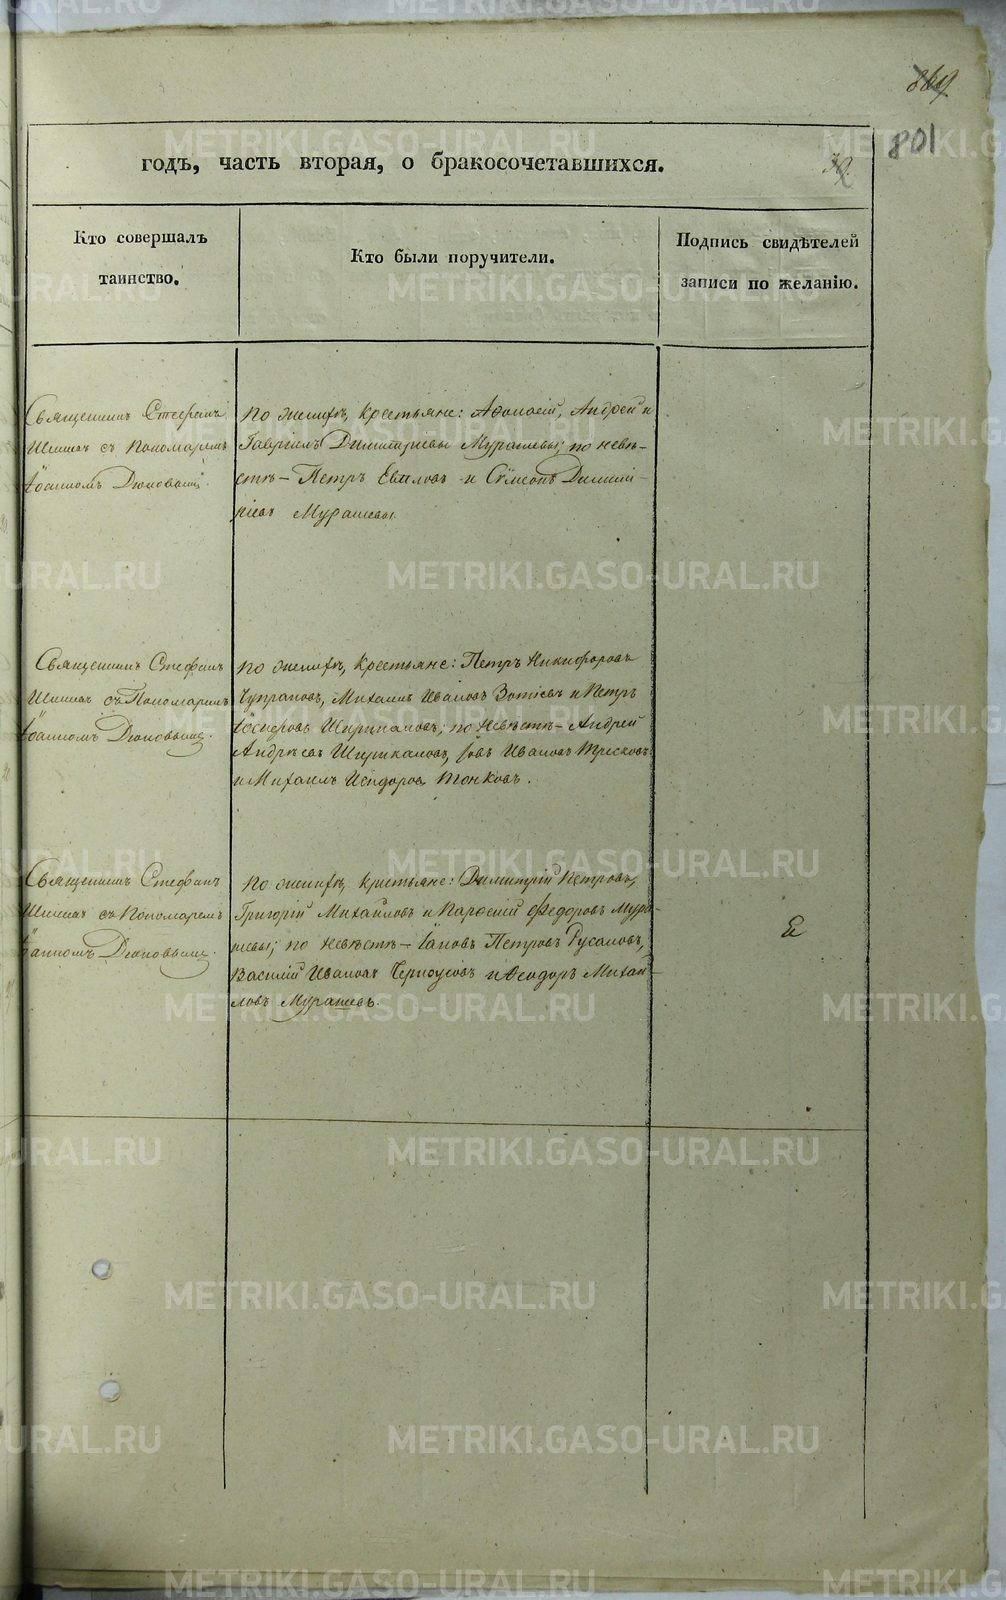 869
801
годъ, часть вторая, о бракосочетавшихся.
Кто совершалъ
таинство.
Кто были поручители.
Подпись свидѣтелей
записи по желанію.
Священникъ Стефанъ
съ Пономаремъ
Іоанномъ
По женихѣ, крестьяне: Афонасій, Андрей и
Гавріилъ Димитріевы Мурашевы; по невѣ-
стѣ – Петръ и Сѵмеонъ Димит-
ріевъ Мурашевы
Священникъ Стефанъ
съ Пономаремъ
Іоанномъ
По женихѣ, крестьяне: Петръ Никифоровъ
Чупраковъ, Михаилъ Ивановъ Зотіевъ и Петръ
по невѣстѣ – Андрей
Андреевъ Ширшкановъ, Іовъ Ивановъ Тресковъ
и Михаилъ Исидоровъ Тонковъ.
Священникъ Стефанъ
съ Пономаремъ
Іоанномъ
По женихѣ, крестьяне: Димитрій Петровъ,
Григорій Михайловъ и Парѳеній Федоровъ Мура-
шевы; по невѣстѣ – Іаковъ Петровъ Русаковъ,
Василій Ивановъ Черноусовъ и Ѳеодоръ Михаи-
ловъ Мурашевъ.
METRIKI.GASO-URAL.RU